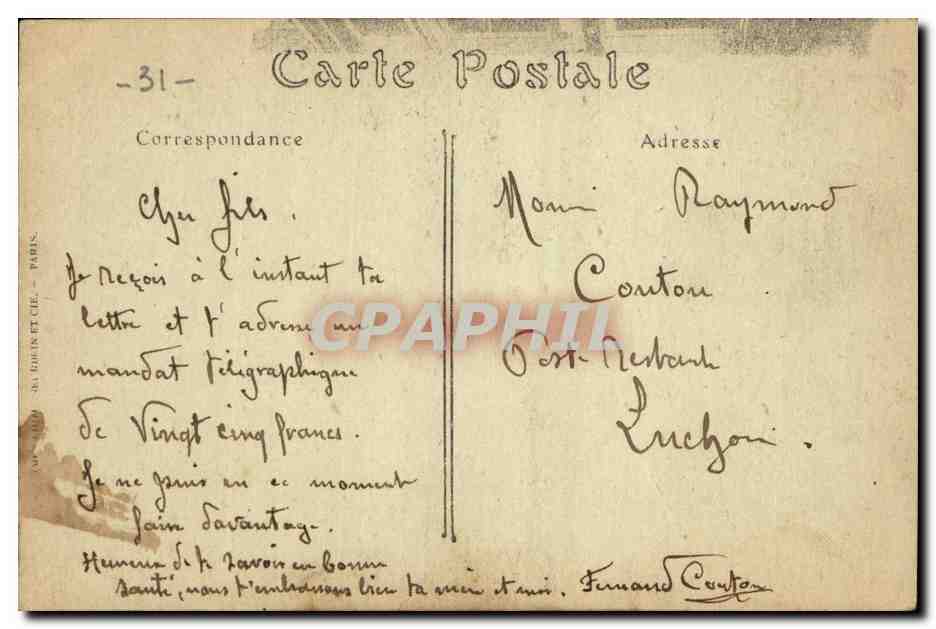 - 31 -
Carte Postale
Correspondance
Adresse
Cher fils.
Je reçois à l'instant ta
lettre et t'adresse un
mandat télégraphique
de Vingt cinq francs.
Je ne puis en ce moment
faire davantage.
Heureux de te savoir en bonne
santé, nous t'embrassons bien ta mère et moi. Fernand Couton
Raymond
Couton
Poste Restante
Luchon.
ET CIE. - PARIS.
CPAPHIL